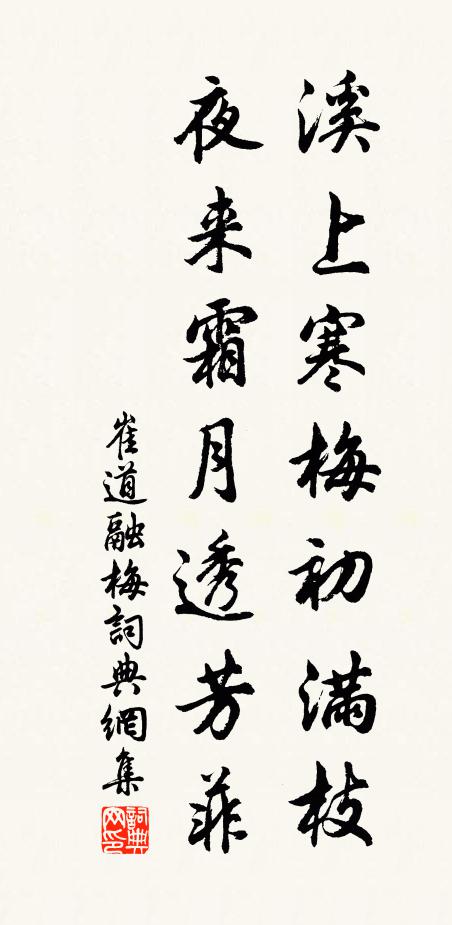 溪上寒梅初滿枝
夜来霜月透芳菲
崔道融梅詞典網集
詞典網印